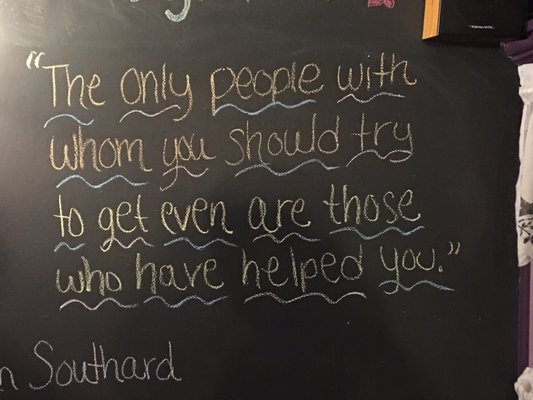 "The only people with
whom you should try
to get even are those
who have helped you."
n Southard